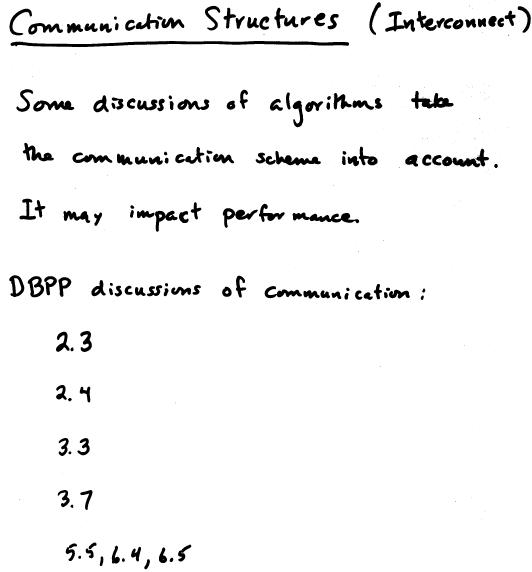 Communication Structures (Interconnect)
Some discussions of algorithms take
the communication scheme into account.
It may impact performance.
DBPP discussions of communication:
2.3
2.4
3.3
3.7
5.5, 6.4, 6.5